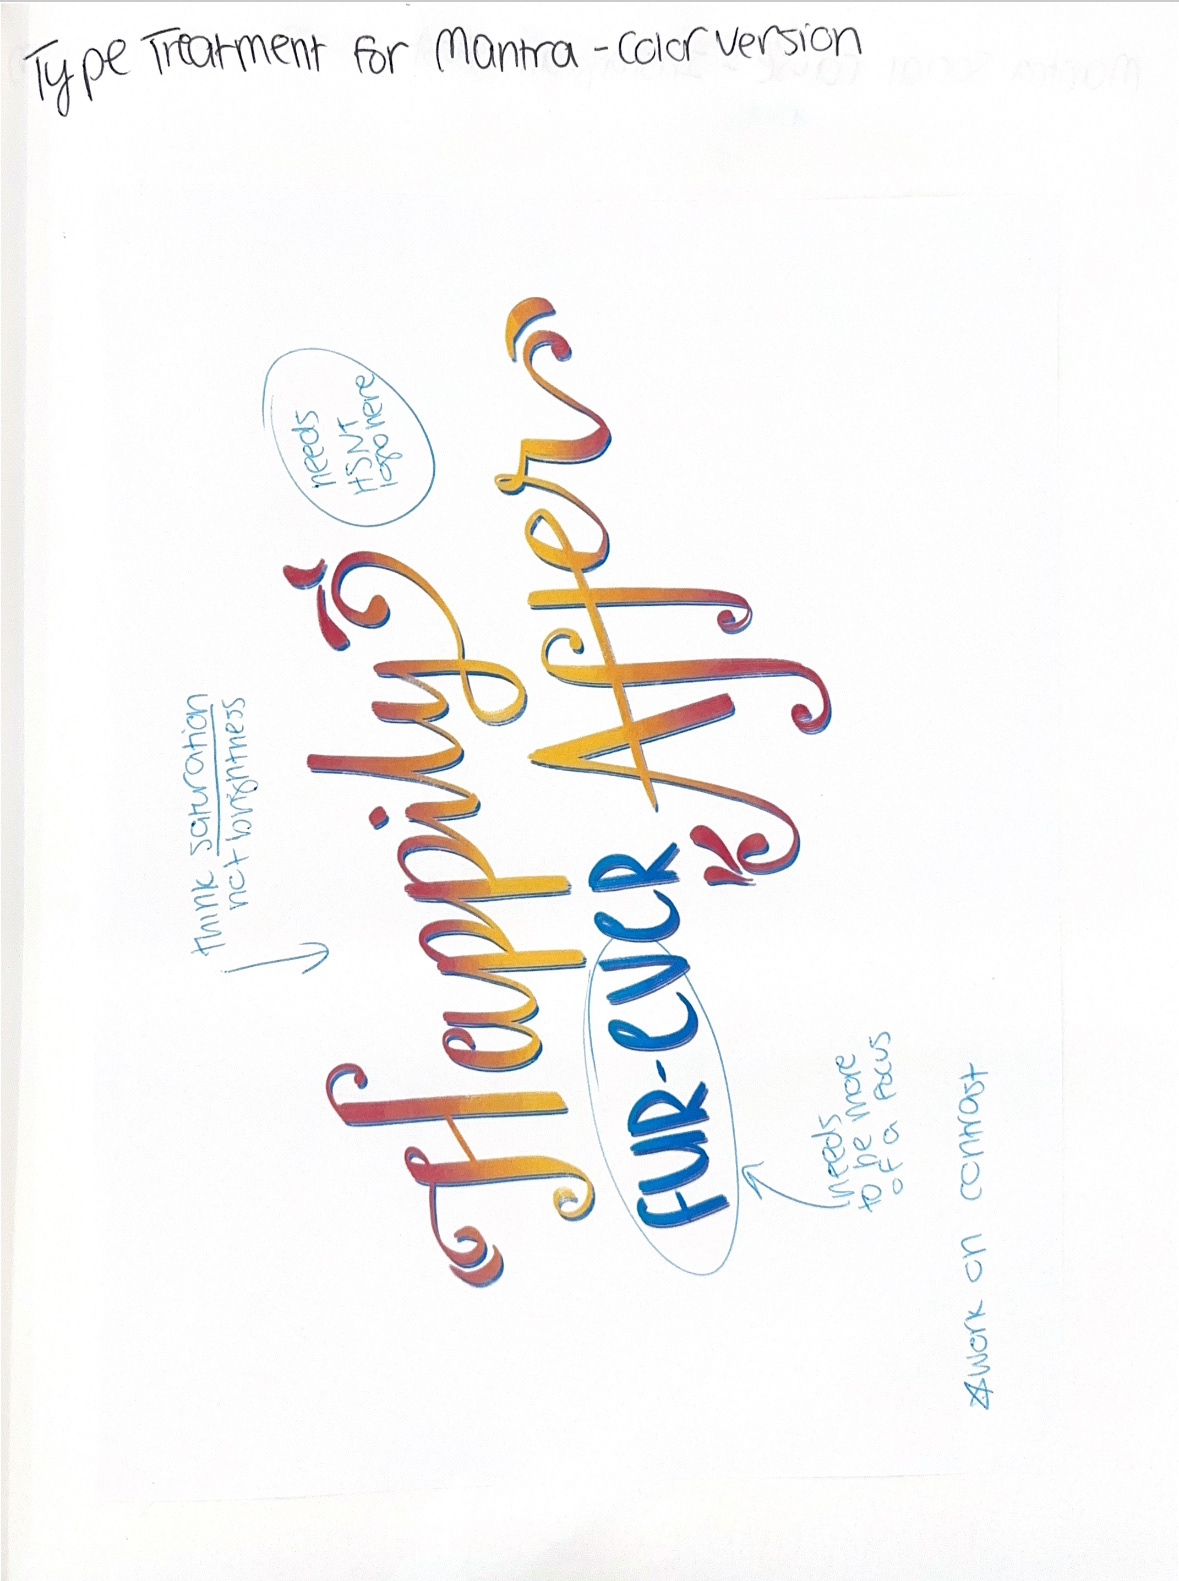 Type Treatment for Mantra - Color version
think saturation
not brightness
needs
HSNT
logo here
Happily
FUR-EVER
After
needs
to be more
of a focus
☆work on contrast